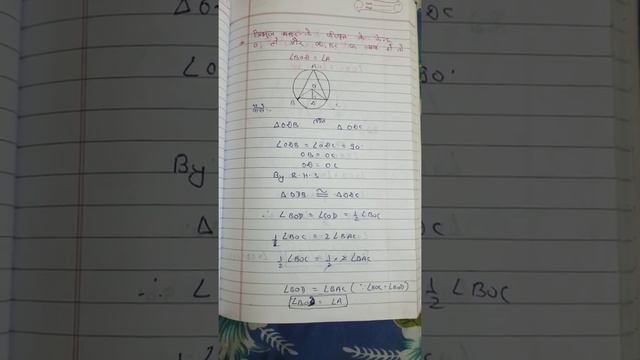 त्रिभुज ABC के परिवृत्त के केन्द्र
O, हो और OD, BC पर लम्ब हो तो
∠BOD = ∠A
A
O
B
C
ΔODB
ΔODC
∠ODB = ∠ODC = 90°
OB = OC
OD = OC
By R.H.S
ΔODB ≅ ΔODC
∴ ∠BOD = ∠COD = ½∠BOC
∠BOC = 2∠BAC
½∠BOC = ½×2∠BAC
∠BOD = ∠BAC (∵∠BOC=∠BOD)
∠BOD = ∠A